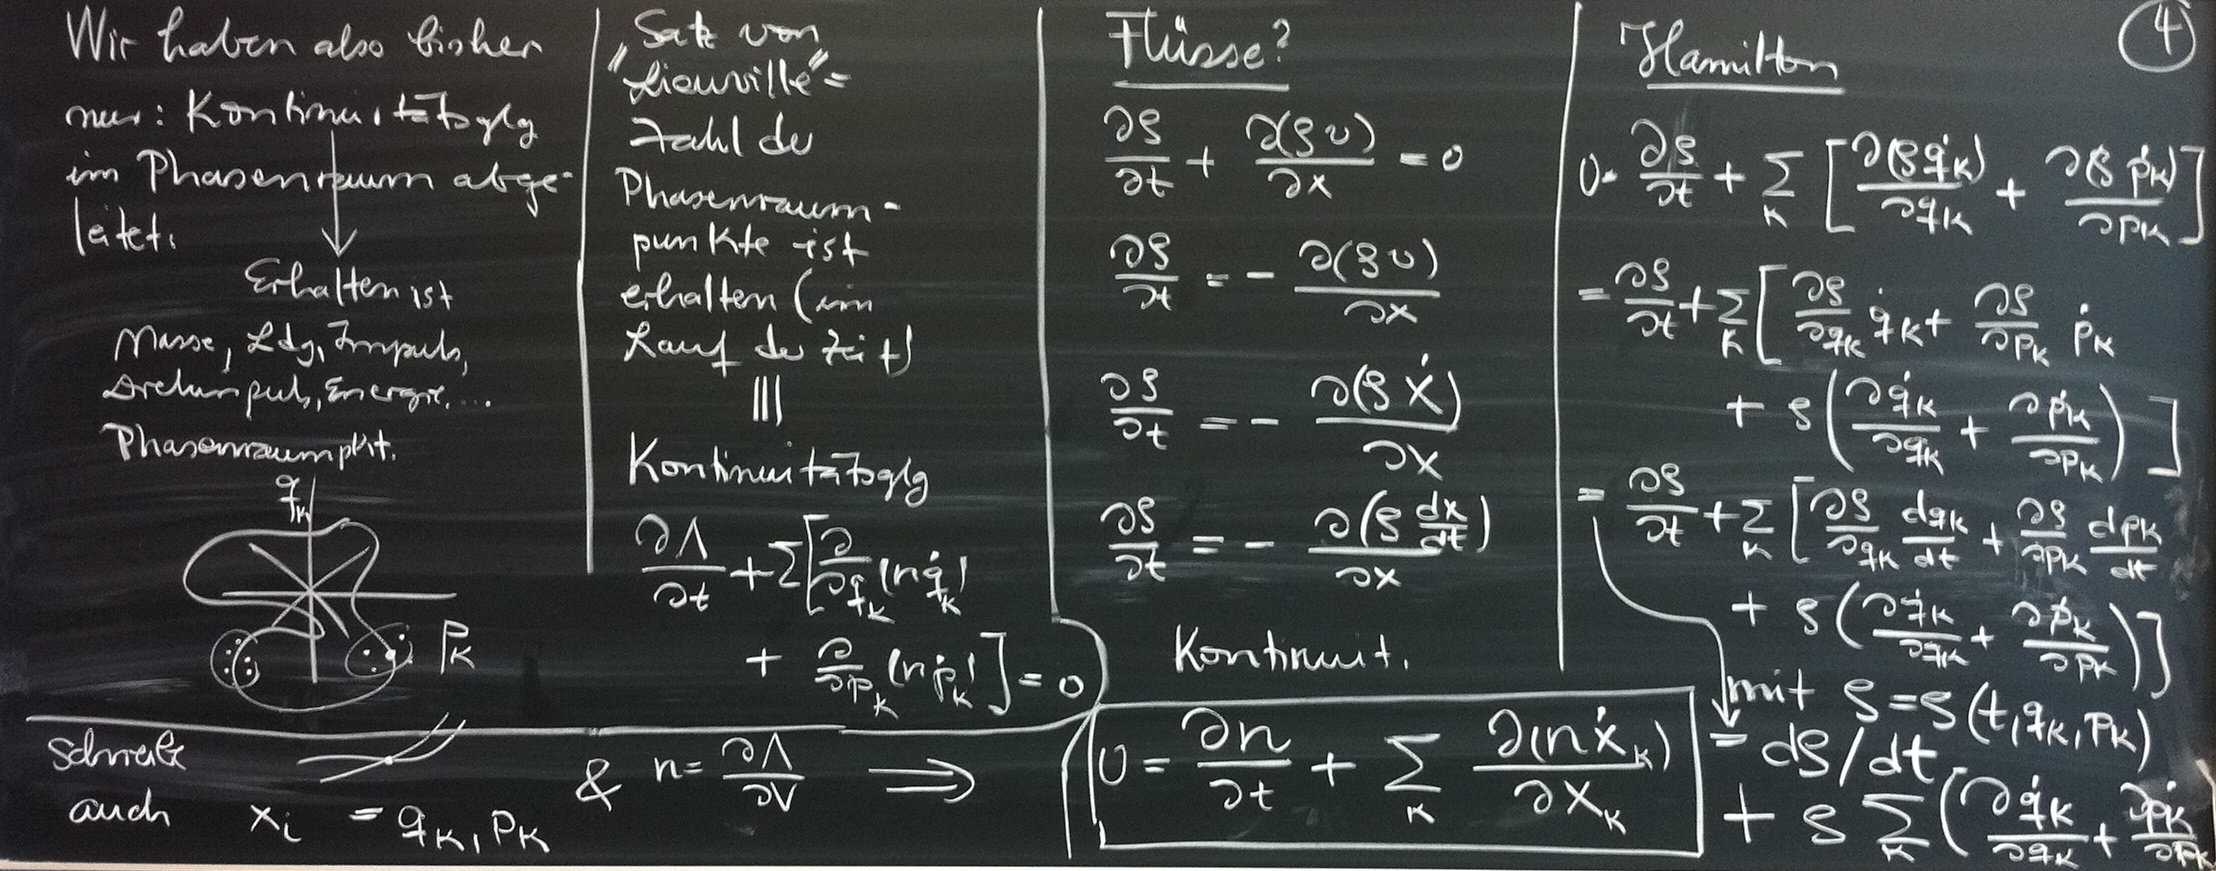 Wir haben also bisher
nur: Kontinuitätsglg
im Phasenraum abge-
leitet.
Erhalten ist
Masse, Ldg, Impuls,
Drehimpuls, Energie, ...
Phasenraumpkt.
q_k
p_k
schreibe
auch x_i = q_k, p_k
& n = ∂Λ/∂V ⟹
Satz von
"Liouville" =
Zahl der
Phasenraum-
punkte ist
erhalten (im
Lauf der Zeit)
|||
Kontinuitätsglg
∂Λ/∂t + Σ[∂/∂q_k (n q̇_k)
+ ∂/∂p_k (n ṗ_k)] = 0
Flüsse?
∂ρ/∂t + ∂(ρv)/∂x = 0
∂ρ/∂t = - ∂(ρv)/∂x
∂ρ/∂t = - ∂(ρẋ)/∂x
∂ρ/∂t = - ∂(ρ dx/dt)/∂x
Kontinuit.
0 = ∂n/∂t + Σ_k ∂(nẋ_k)/∂x_k
Hamilton
4
0 = ∂ρ/∂t + Σ_k [∂(ρq̇_k)/∂q_k + ∂(ρṗ_k)/∂p_k]
= ∂ρ/∂t + Σ_k [∂ρ/∂q_k q̇_k + ∂ρ/∂p_k ṗ_k
+ ρ(∂q̇_k/∂q_k + ∂ṗ_k/∂p_k)]
= ∂ρ/∂t + Σ_k [∂ρ/∂q_k dq_k/dt + ∂ρ/∂p_k dp_k/dt
+ ρ(∂q̇_k/∂q_k + ∂ṗ_k/∂p_k)]
mit ρ = ρ(t, q_k, p_k)
= dρ/dt
+ ρ Σ_k (∂q̇_k/∂q_k + ∂ṗ_k/∂p_k